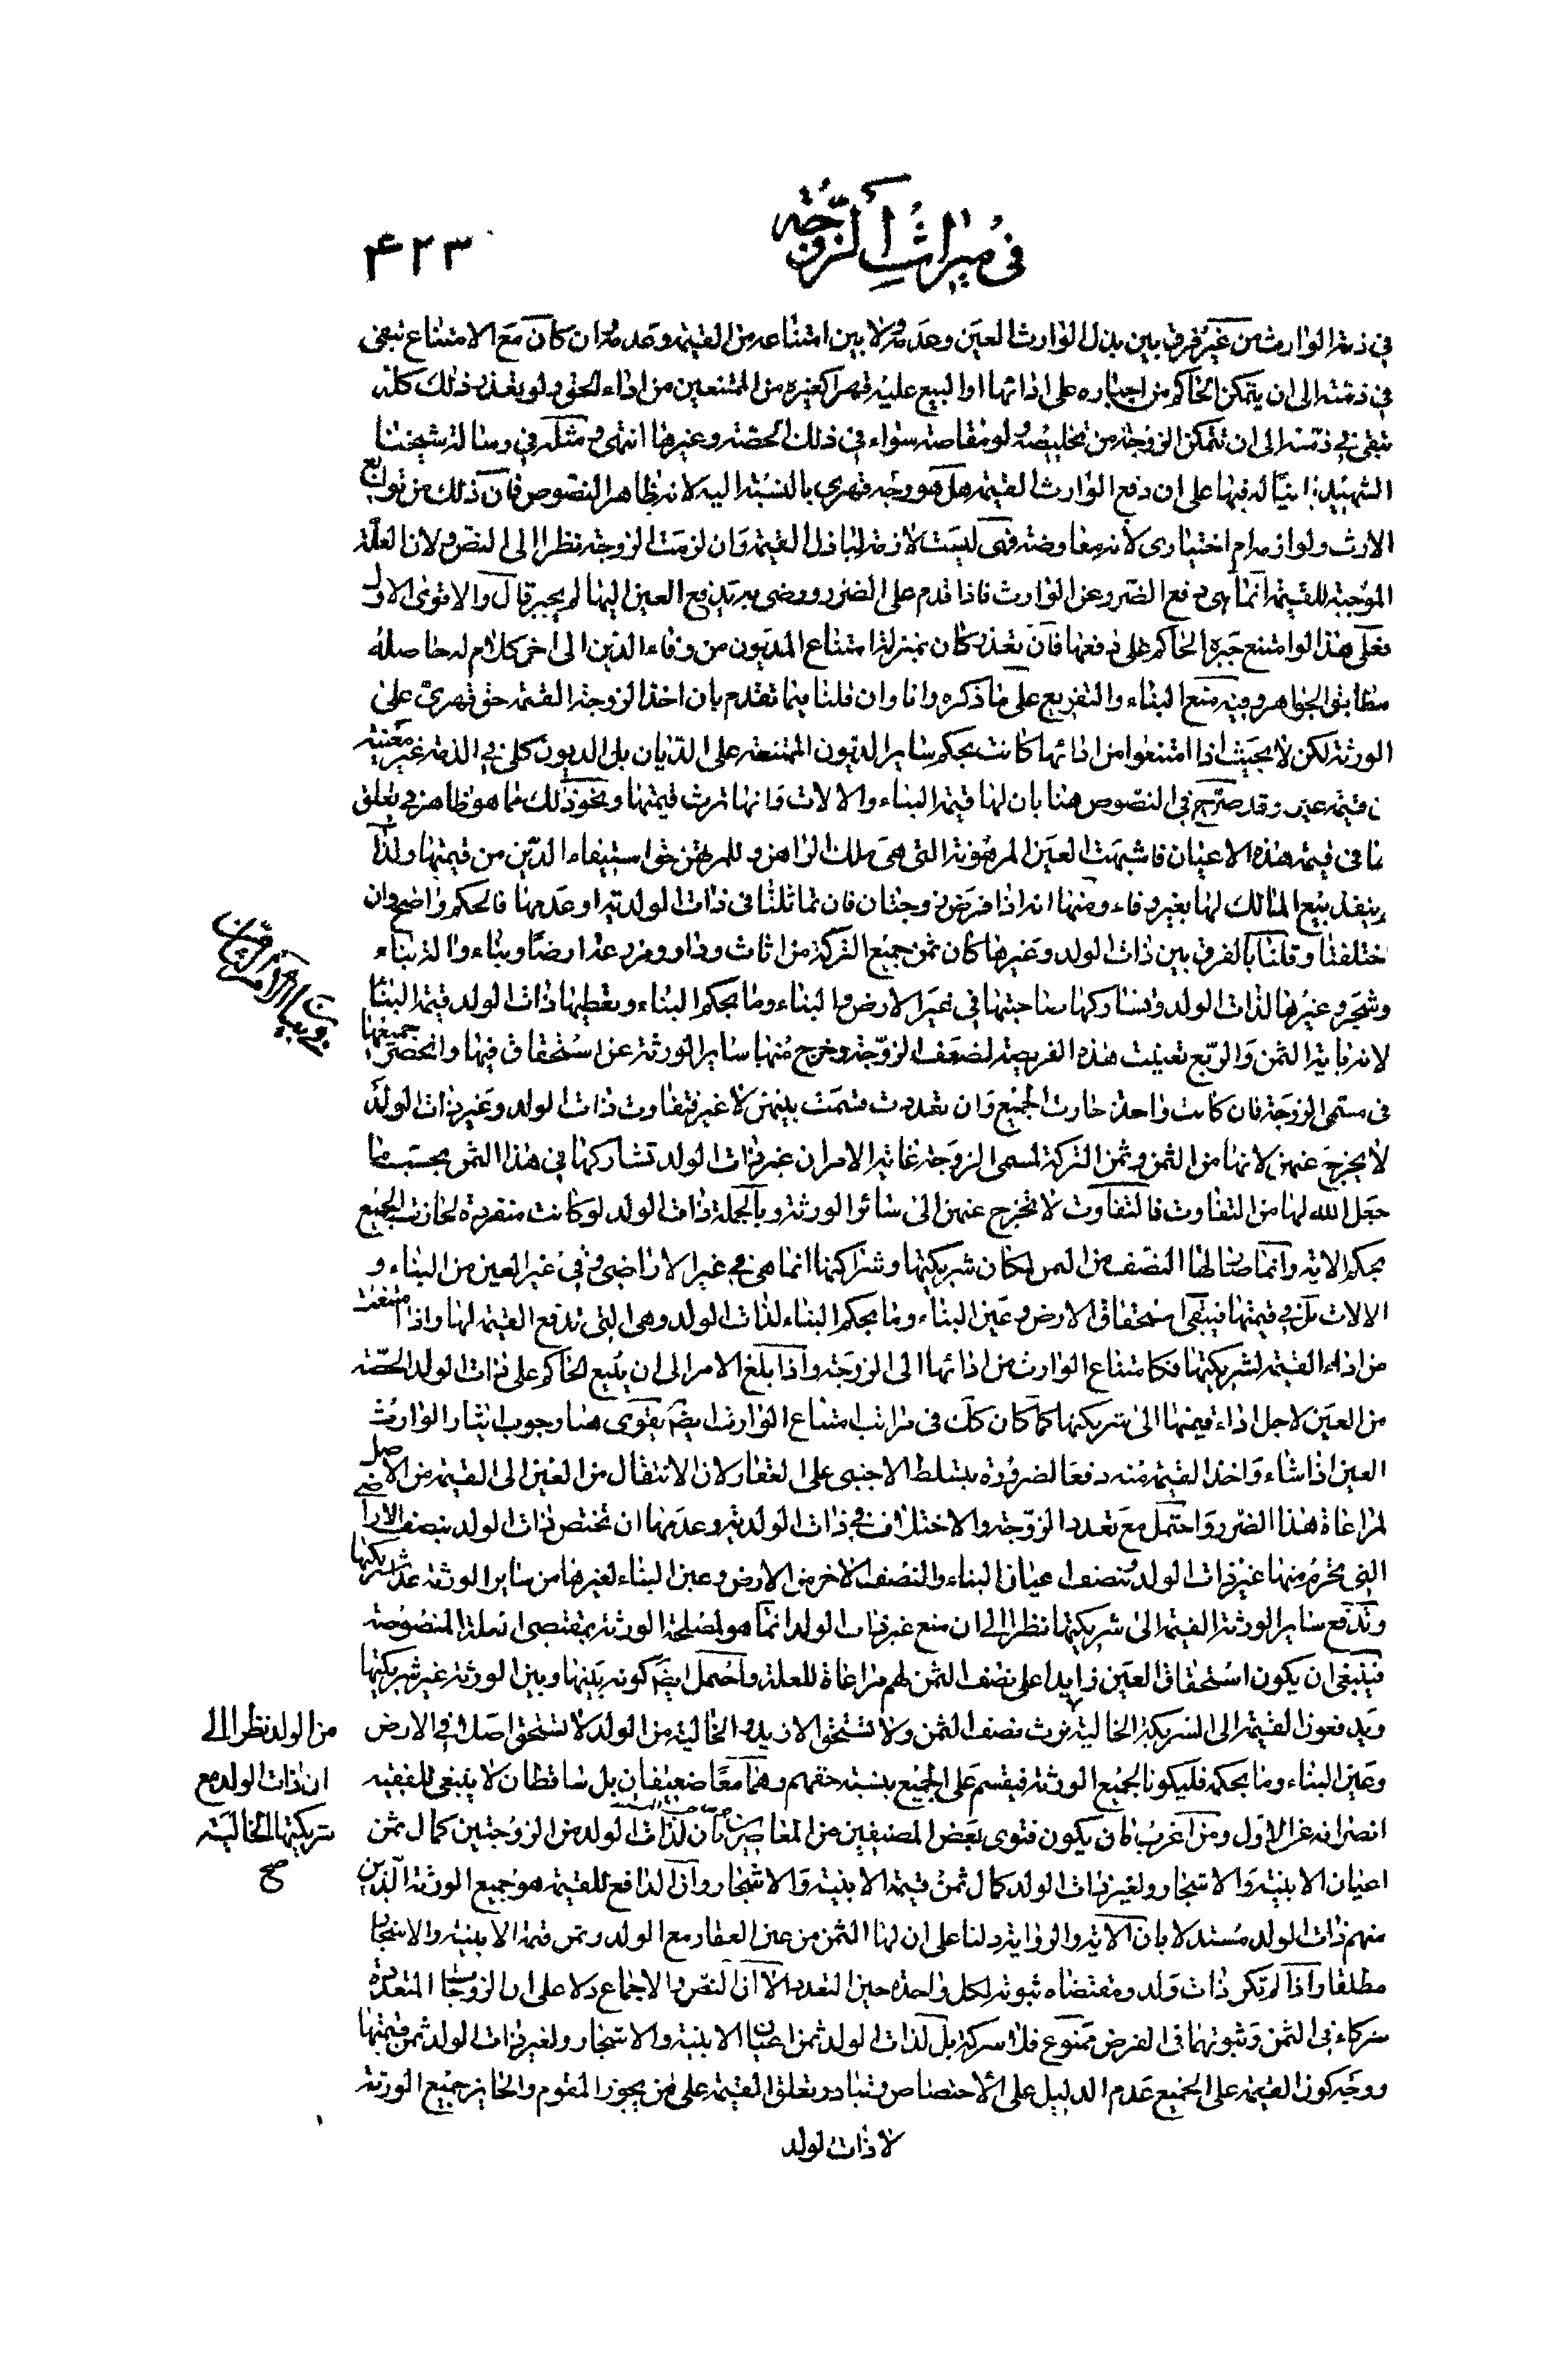 في ميراث الزوجة
۴۲۳
في ذمة الوارث من غير فرق بين بذل الوارث العين وعدمه ولا بين امتناعه من القيمة وعدمه وان كان مع الامتناع تبقى
في ذمته الى ان يتمكن الحاكم من اجباره على ادائها او البيع عليه قهرا كغيره من الممتنعين من اداء الحق ولو تعذر ذلك كله
تبقى في ذمته الى ان تتمكن الزوجة من تخليصه ولو مقاصة سواء في ذلك الحصة وغيرها انتهى ومثله في رسالة شيخنا
الشهيد في ان دفع الوارث القيمة هل هو وجه قهري بالنسبة اليه لانه ظاهر النصوص فان ذلك من توابع
الارث ولوازمه ام اختيارى لانه معاوضة فهى ليست لازمة لباذل القيمة وان لزمت الزوجة نظرا الى النص ولان العلة
الموجبة للقيمة انما هى دفع الضرر عن الوارث فاذا قدم على الضرر ورضى به بدفع العين اليها لم يجبر قال والاقوى الاول
فعلى هذا لو امتنع جبره الحاكم على دفعها فان تعذر كان بمنزلة امتناع المديون من وفاء الدين الى اخر كلام له حاصله
مطابق الجواهر وفيه منع البناء والتفريع على ما ذكره وانا وان قلنا فيما تقدم بان اخذ الزوجة القيمة حق قهرى على
الورثة لكن لا بحيث اذا امتنعوا من ادائها كانت بحكم ساير الديون الممتنعة على الديان بل الديون كلى في الذمة غير معينة
قيمة عين وقد صرح في النصوص هنا بان لها قيمة البناء والالات وانها ترث قيمتها ونحو ذلك مما هو ظاهر في تعلق
في قيمة هذه الاعيان فاشبهت العين المرهونة التى هى ملك الراهن وللمرتهن حق استيفاء الدين من قيمتها ولذا
ينفذ بيع المالك لها بغير وفاء ومنها انه اذا فرض زوجتان فان تماثلتا فى ذات الولدية او عدمها فالحكم واضح وان
ختلفتا وقلنا بالفرق بين ذات الولد وغيرها كان ثمن جميع التركة من اثاث ودار ومزرعة ارضا وبناء والة بناء
وشجر وغيرها لذات الولد وتشاركها صاحبتها في غير الارض والبناء وما بحكم البناء وتعطيها ذات الولد قيمة البناء
لانه باية الثمن والربع تعينت هذه الفريضة لضعف الزوجة وخرج منها ساير الورثة عن استحقاق فيها وانحصر جميعها
فى مسمى الزوجة فان كانت واحدة حازت الجميع وان تعددت قسمت بينهن لا غير فتفاوت ذات الولد وغير ذات الولد
لا يخرج عنهن لانها من الثمن وثمن التركة لمسمى الزوجة غاية الامر ان غير ذات الولد تشاركها في هذا الثمن بحسب ما
جعل الله لها من التفاوت فالتفاوت لا تخرج عنهن الى سائر الورثة وبالجملة ذات الولد لو كانت منفردة لحازت الجميع
بحكم الاية وانما صار لها النصف من الثمن لمكان شريكتها وشراكتها انما هى في غير الاراضى وفي غير العين من البناء و
الالات بل في قيمتها فيبقى استحقاق الارض وعين البناء وما بحكم البناء لذات الولد وهى التى تدفع القيمة لها واذا امتنعت
من اداء القيمة لشريكتها فكامتناع الوارث من ادائها الى الزوجة واذا بلغ الامر الى ان يبيع الحاكم على ذات الولد الحصة
من العين لاجل اداء قيمتها الى شريكتها كما كان كك فى مراتب امتناع الوارث ايضا يقوى هنا وجوب ايثار الوارث
العين اذا شاء واخذ القيمة منه دفعا لضرورة تسلط الاجنبى على العقار ولان الانتقال من العين الى القيمة من الاصل
لمراعاة هذا الضرر واحتمل مع تعدد الزوجة والاختلاف في ذات الولدية وعدمها ان تختص ذات الولد بنصف الاراضي
التي تحرم منها غير ذات الولد وبنصف اعيان البناء والنصف الاخر من الارض وعين البناء لغيرها من ساير الورثة عدا شريكتها
وتدفع ساير الورثة القيمة الى شريكتها نظرا الى ان منع غير ذات الولد انما هو لمصلحة الورثة بمقتضى العلة المنصوصة
فينبغى ان يكون استحقاق العين زايدا على نصف الثمن لهم مراعاة للعلة واحتمل ايضا كونه بينها وبين الورثة غير شريكتها
ويدفعون القيمة الى الشريكة الخالية من الولد نظرا الى
ان ذات الولد مع
شريكتها الخالية
صح
ترث نصف الثمن ولا تستحق الازيد والخالية من الولد لا تستحق اصلا في الارض
وعين البناء وما بحكمه فليكونا لجميع الورثة فيقسم على الجميع بنسبة حقهم وهما معا ضعيفان بل ساقطان لا ينبغي للفقيه
انصرافه عن الاول ومن اغرب ما كان يكون فتوى بعض المصنفين من المعاصرين بان لذات الولد من الزوجتين كمال ثمن
اعيان الابنية والاشجار ولغير ذات الولد كمال ثمن قيمة الابنية والاشجار وان الدافع للقيمة هو جميع الورثة الذين
منهم ذات الولد مستدلا بان الاية والرواية دلتا على ان لها الثمن من عين العقار مع الولد وثمن قيمة الابنية والاشجار
مطلقا واذا لم تكن ذات ولد ومقتضاه ثبوته لكل واحدة حين التعدد الا ان النص والاجماع دلا على ان الزوجات المتعددة
شركاء في الثمن وثبوتهما في الفرض ممنوع فلا شركة بل لذات الولد ثمن اعيان الابنية والاشجار ولغير ذات الولد ثمن قيمتها
ووجه كون القيمة على الجميع عدم الدليل على الاختصاص وتبادر تعلق القيمة على من يجوز المقوم والحايز جميع الورثة
لا ذات لولد